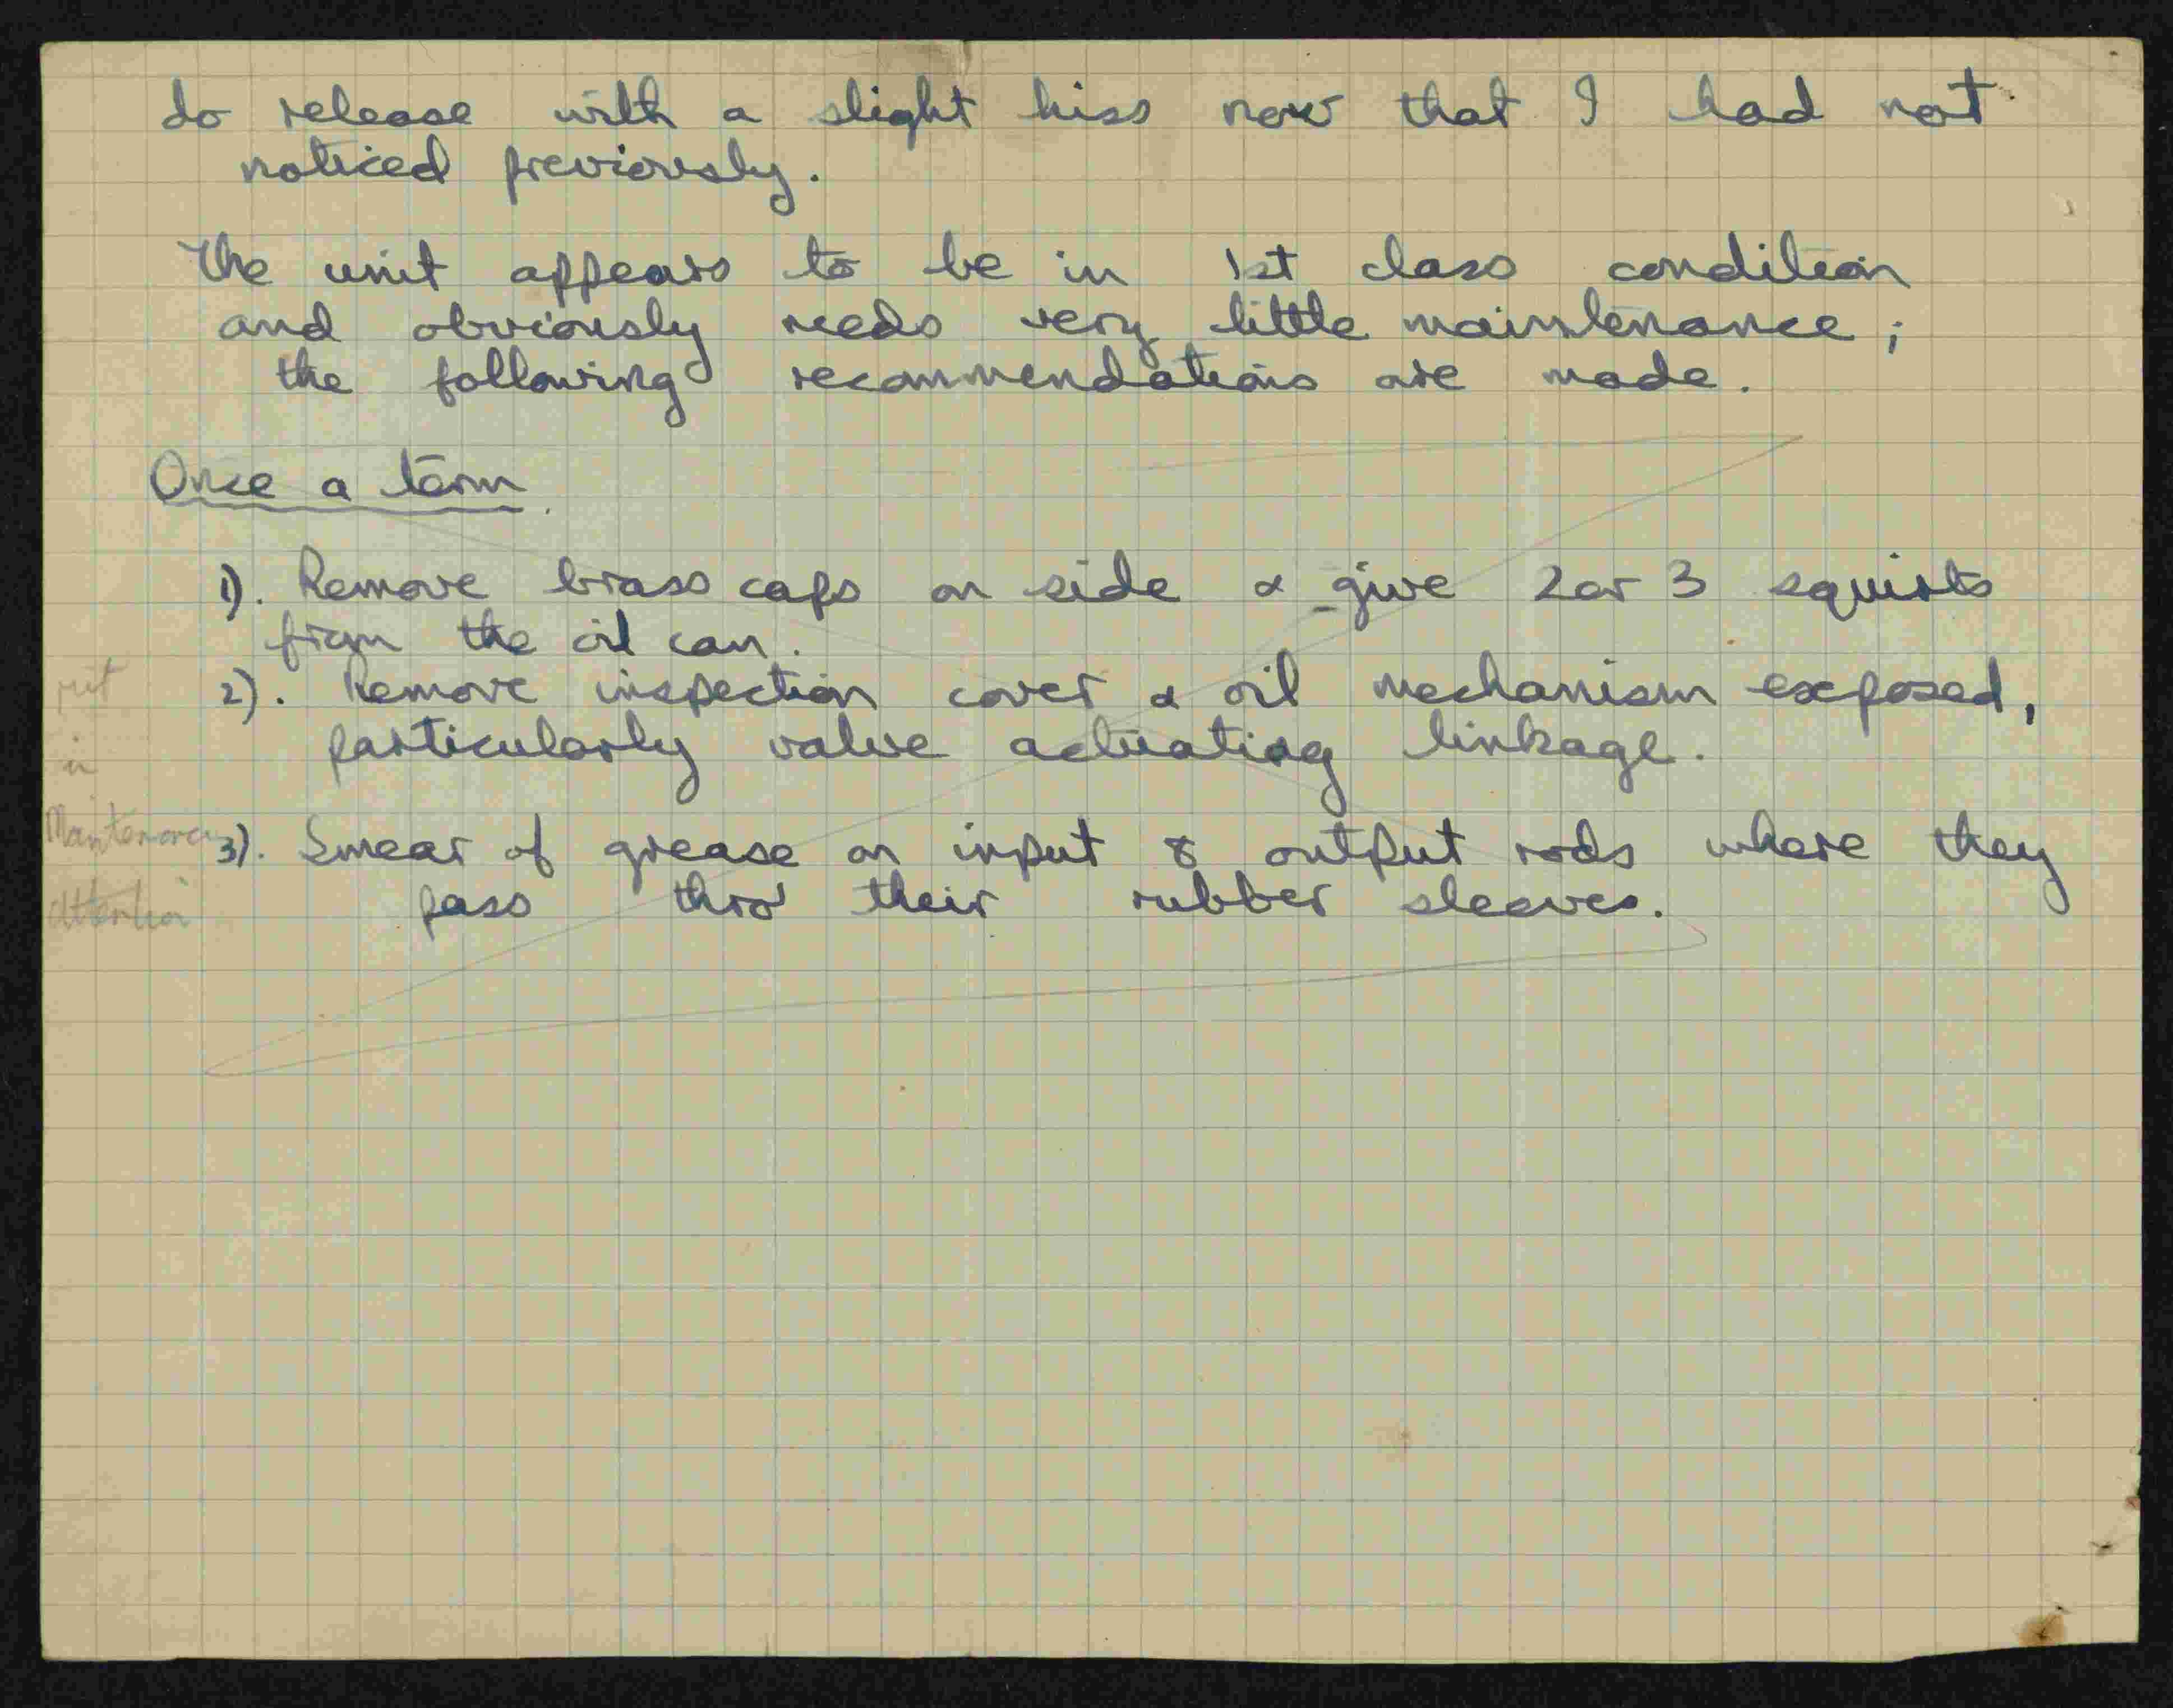 do release with a slight hiss now that I had not
noticed previously.
The unit appears to be in 1st class condition
and obviously needs very little maintenance;
the following recommendations are made.
Once a term.
1). Remove brass caps on side & give 2 or 3 squirts
from the oil can.
2). Remove inspection cover & oil mechanism exposed,
particularly valve actuating linkage.
3). Smear of grease on input & output rods where they
pass thro' their rubber sleeves.
put
in
Maintenance
attention